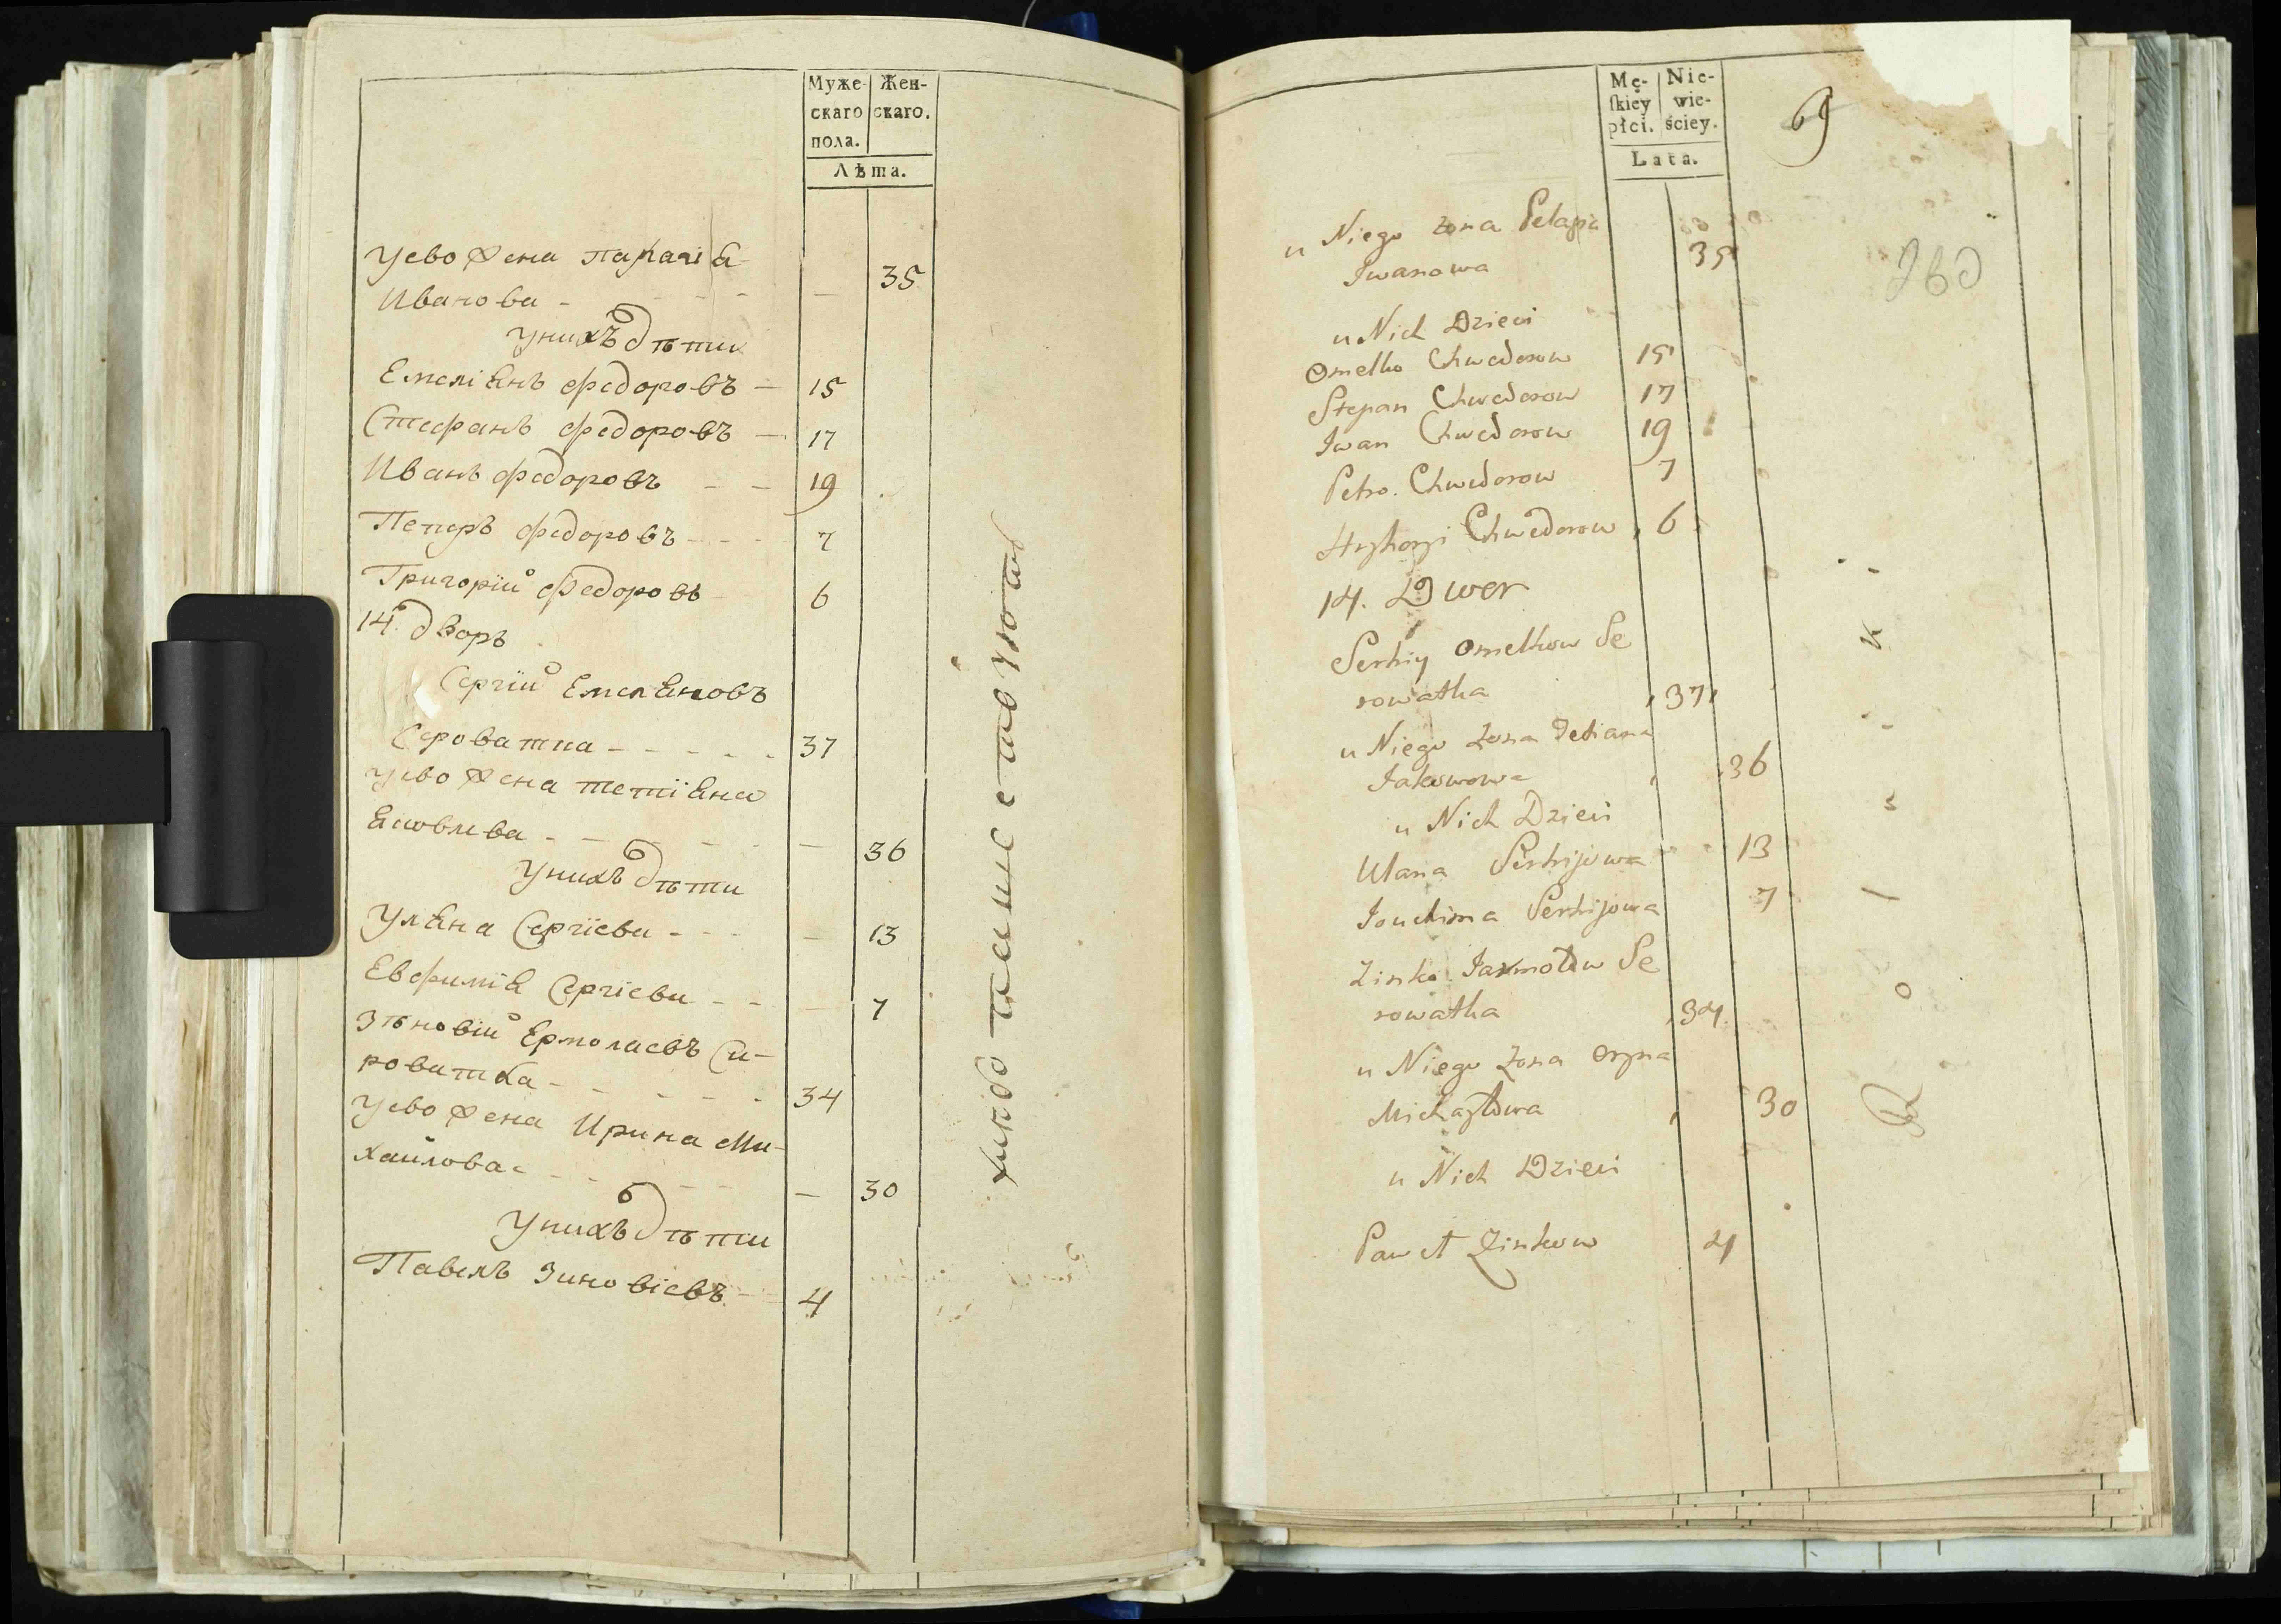 Муже-
скаго
пола.
Жен-
скаго.
Лѣта.
Уево жена
Иванова - 35
Унихъ дѣти
Емеліянъ Федоровъ - 15
Стефанъ Федоровъ - 17
Иванъ Федоровъ - - 19
Петеръ Федоровъ - - - 7
Григорій Федоровъ 6
14. дворъ
Сергій Емеляновъ
Сероватка - - - - - 37
уево жена тетіяна
Яковлева - - - - - 36
Унихъ дѣти
Уляна Сергіева - - - 13
Евфимія Сергіева - - 7
Зѣновій Ермолаевъ Си-
роватка - - - - - 34
уево жена Ирина Ми-
хайлова - - - - 30
Унихъ дѣти
Павелъ Зиновіевъ - - 4
Mę-
ſkiey
płci.
Nie-
wie-
ściey.
Lata.
69
u Niego zona Pelagia
Iwanowa 35
u Nich Dzieci
Omelko Chwedorow 15
Stepan Chwedorow 17
Iwan Chwedorow 19
Petro Chwedorow 7
Hryhoryi Chwedorow 6
14. Dwor
Serhiy Omelkow Se
rowatka 37
u Niego Zona Tetiana
Jakowowa 36
u Nich Dzieci
Ulana Serhijowa 13
Iouchima Serhijowa 7
Zinko Jarmołow Se
rowatka 34
u Niego Zona Oryna
Michayłowa 30
u Nich Dzieci
Paweł Zinkow 4